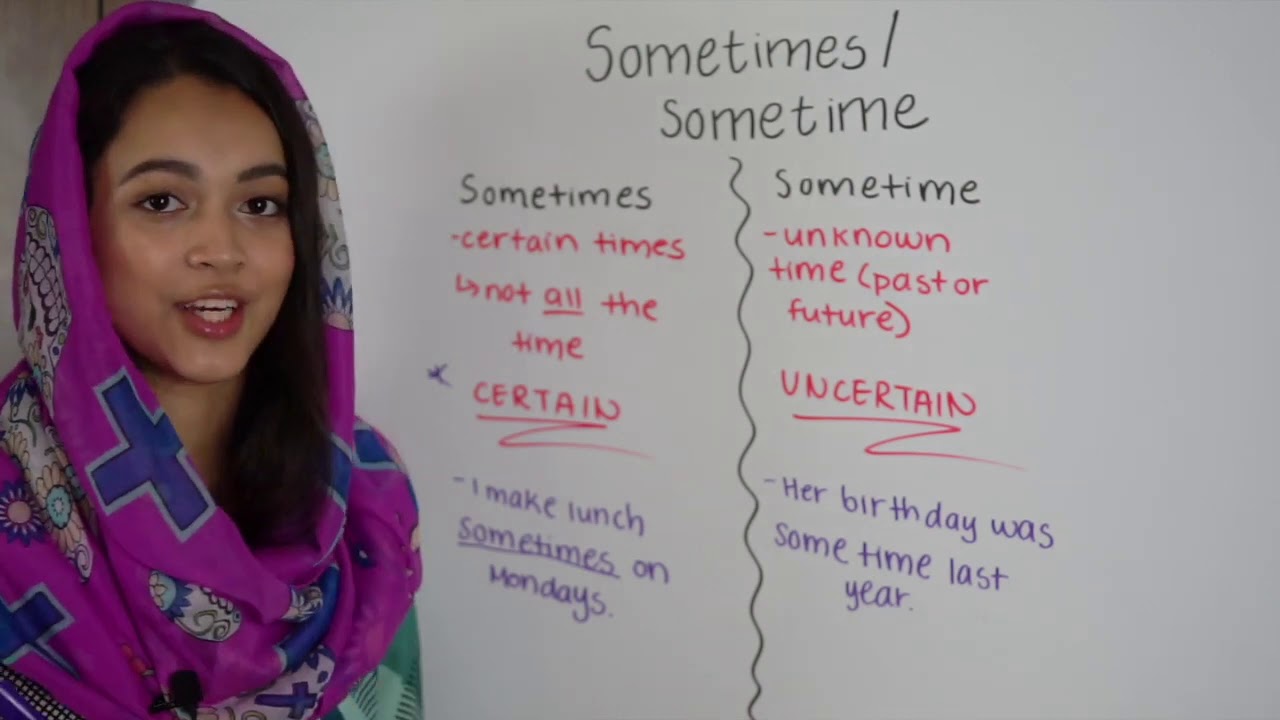 Sometimes/
sometime
Sometimes
-certain times
↳not all the
time
* CERTAIN
-I make lunch
sometimes on
Mondays.
Sometime
-unknown
time (past or
future)
UNCERTAIN
-Her birthday was
some time last
year.